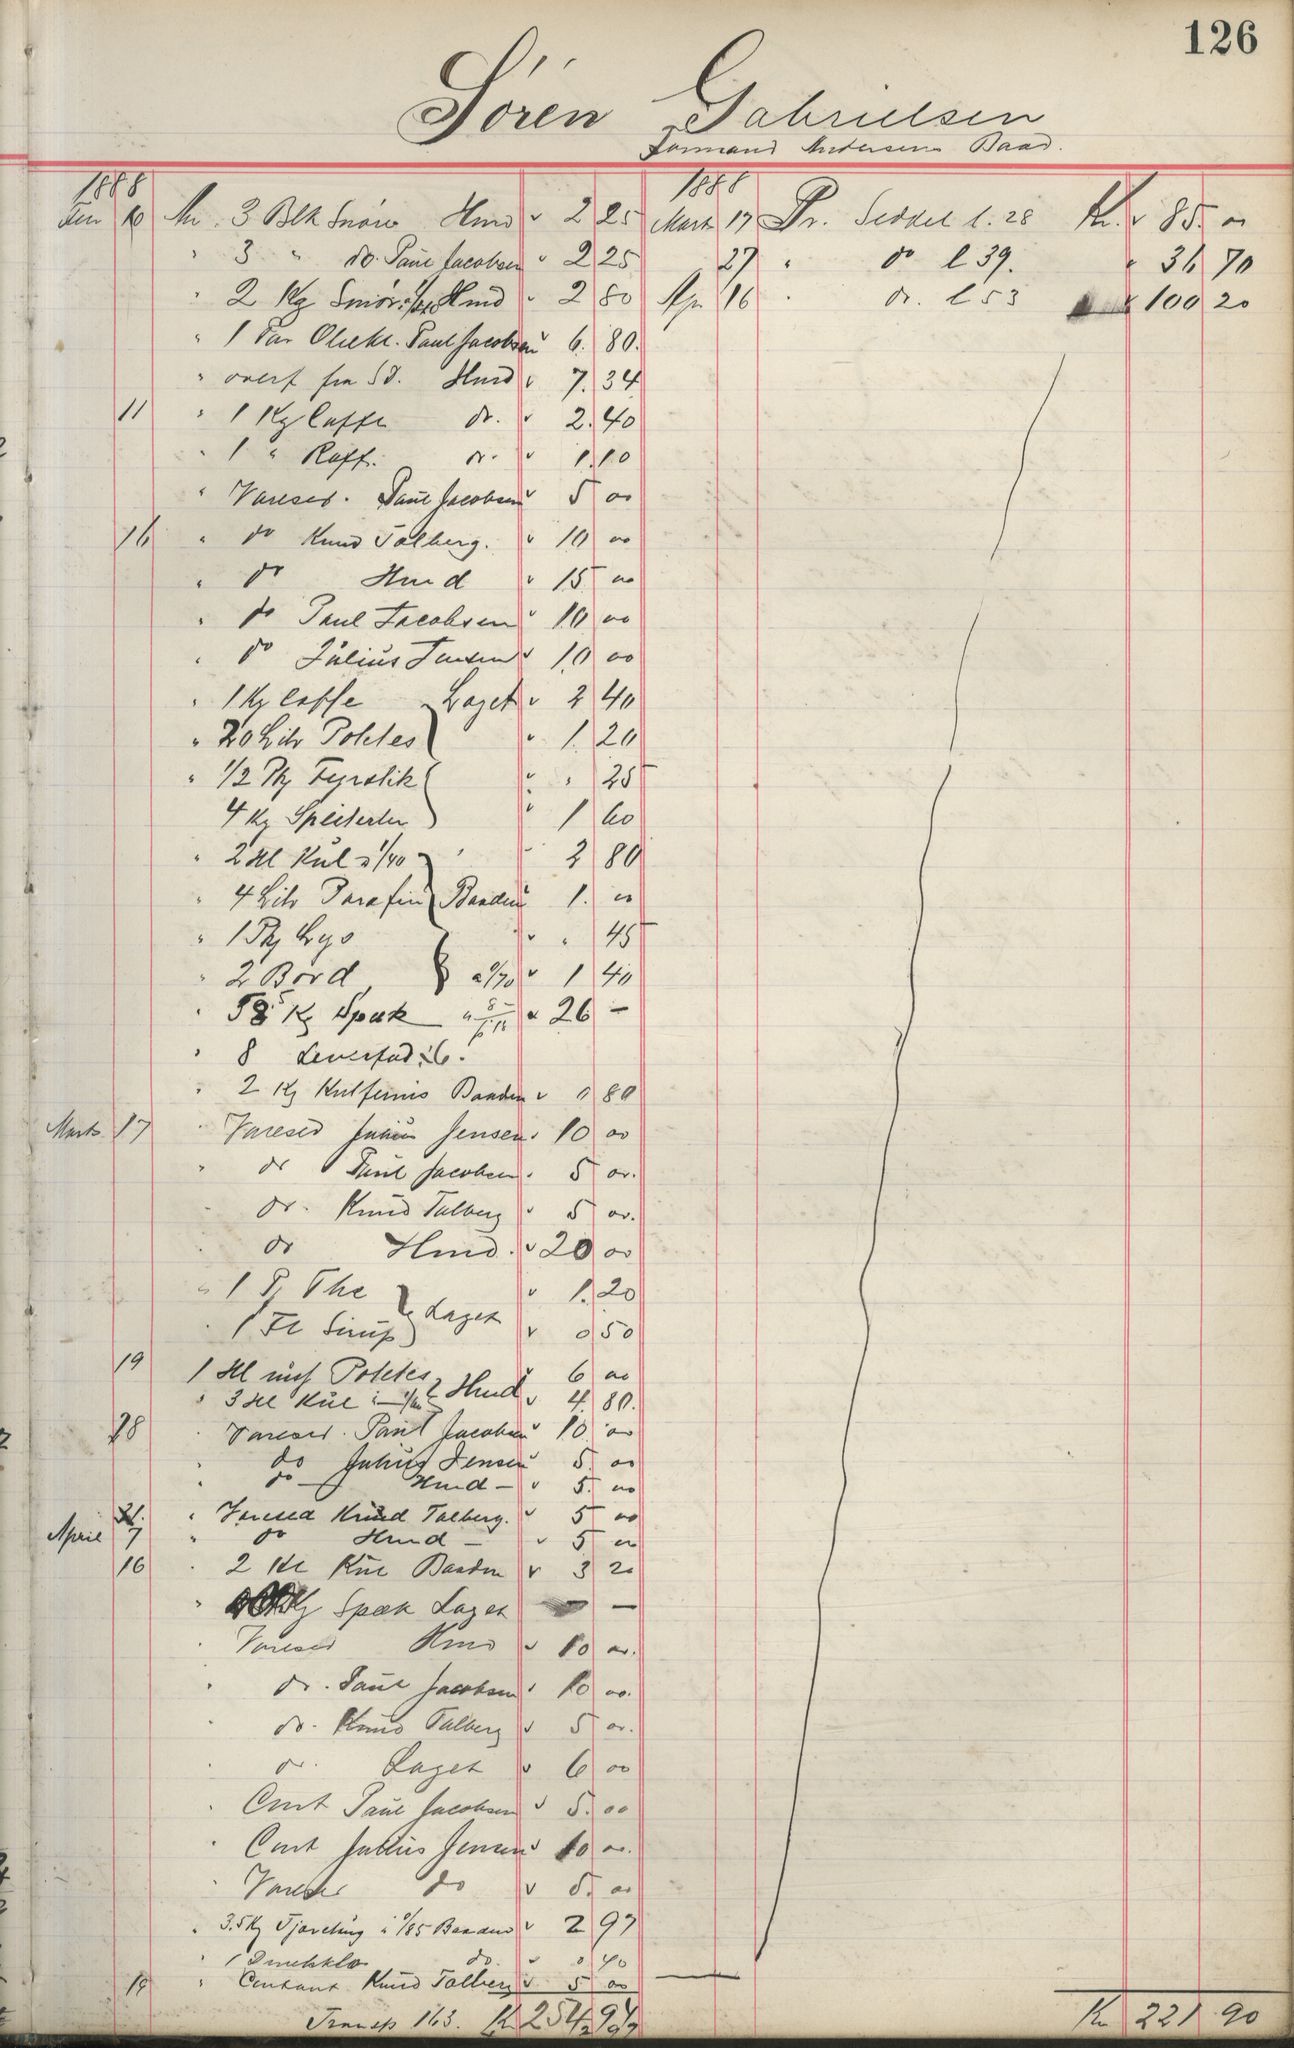 126
Sören Gabrielsen
Formand Andersens Baad.
1888
10 An 3 Blk Snöre Hmd " 2 25
" 3 " do. Paul Jacobsen " 2 25
" 2 Kg Smör Hmd " 2 80
" 1 Par Oliekl. Paul Jacobsen " 6. 80.
" overf fra Hmd " 7. 34
11 " 1 Kg Caffe do. " 2. 40
" 1 " Raff. do. " 1.10
" Varesed. Paul Jacobsen " 5 00
16 " do Knud Talberg. " 10 00
" do Hmd " 15 00
" do Paul Jacobsen " 10 00
" do Julius Jensen " 10 00
" 1 Kg Caffe Laget " 2 40
" 20 Litr Potetes " 1. 20
" 1/2 Pk Fyrstik " " 25
4 Kg " 1 60
" 2 Hl Kul a 1/40 " 2 80
" 4 Litr Parafin Baaden 1. 00
" 1 Pk Lys " " 45
" 2 Bord a 0/70 " 1 40
" Kg Spæk " 26 —
" 8 Leverfad
" 2 Kg Kulfernis Baaden " 0 80
Marts 17 " Varesed Julius Jensen " 10 00
" do Paul Jacobsen " 5 00.
" do. Knud Talberg " 5 00.
" do Hmd. " 20 00
" 1 P. The Laget " 1. 20
" 1 Fl Sirup " 0 50
19 1 Hl Potetes Hmd " 6 00
" 3 Hl Kul " 4. 80.
28 " Varesed. Paul Jacobsen " 10 00
" do Julius Jensen " 5. 00
" do — Hmd — " 5. 00
31. " Varesed Knud Talberg. " 5 00
April 7 " do Hmd — " 5 00
16 " 2 Hl Kul Baaden " 3 20
" Kg Spæk Laget — —
" Varesed Hmd " 10 00.
" do. Paul Jacobsen " 10 00.
" do. Knud Talberg " 5 00.
" do. Laget " 6 00
" Cont Paul Jacobsen " 5. 00
" Cont Julius Jensen " 10 00.
" Varesed do " 5. 00
" 3.5 Kg a 0/85 Baaden " 2 97
" 1 do. " 0 40
19 " Contant Knud Talberg " 5 00
Transp 163. Kr 254 94
1888
Marts 17 Pr. Seddel l. 28 Kr. " 85. 00
27 " do l 39. " 36 70
Apr 16 " do. l 53 " 100 20
Kr 221 90